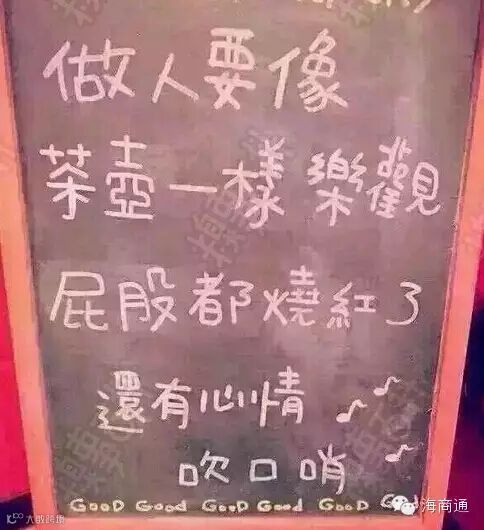 做人要像
茶壺一樣 樂觀
屁股都燒紅了
還有心情
吹口哨
GOOD Good GOOD Good GOOD
海商通
大数跨境